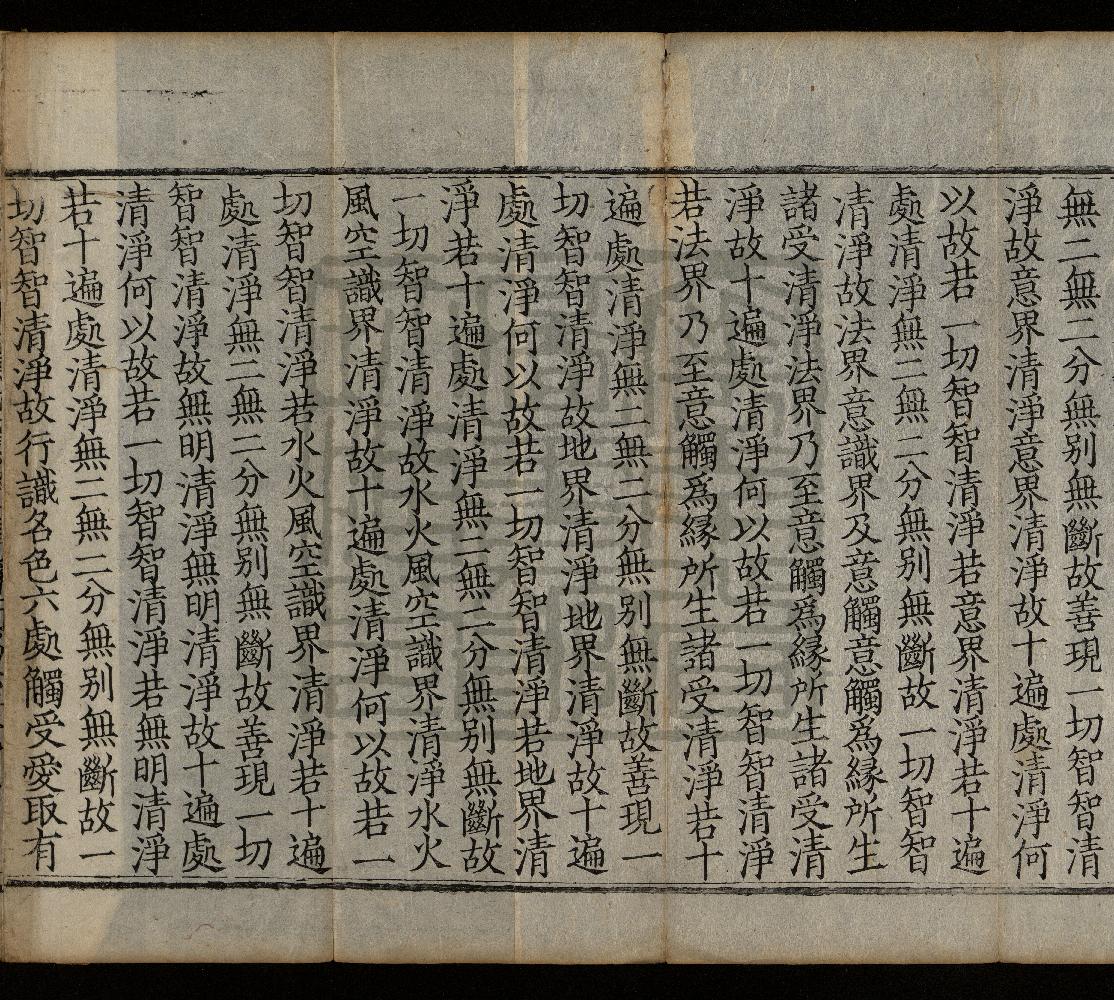 無二無二分無別無斷故善現一切智智清
淨故意界清淨意界清淨故十遍處清淨何
以故若一切智智清淨若意界清淨若十遍
處清淨無二無二分無別無斷故一切智智
清淨故法界意識界及意觸意觸為緣所生
諸受清淨法界乃至意觸為緣所生諸受清
淨故十遍處清淨何以故若一切智智清淨
若法界乃至意觸為緣所生諸受清淨若十
遍處清淨無二無二分無別無斷故善現一
切智智清淨故地界清淨地界清淨故十遍
處清淨何以故若一切智智清淨若地界清
淨若十遍處清淨無二無二分無別無斷故
一切智智清淨故水火風空識界清淨水火
風空識界清淨故十遍處清淨何以故若一
切智智清淨若水火風空識界清淨若十遍
處清淨無二無二分無別無斷故善現一切
智智清淨故無明清淨無明清淨故十遍處
清淨何以故若一切智智清淨若無明清淨
若十遍處清淨無二無二分無別無斷故一
切智智清淨故行識名色六處觸受愛取有